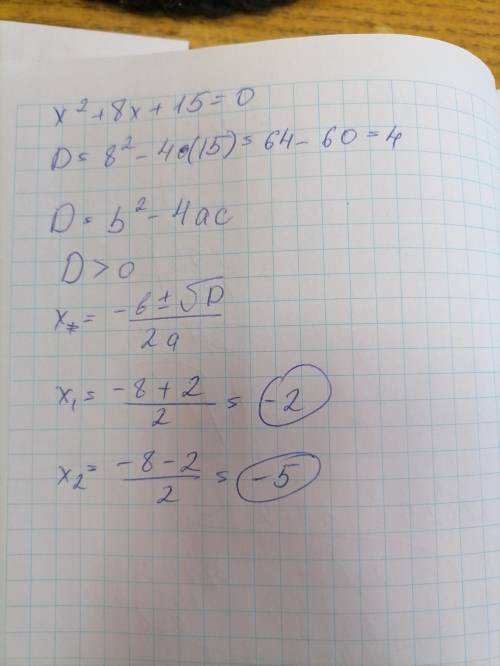 x² + 8x + 15 = 0
D = 8² - 4·(15) = 64 - 60 = 4
D = b² - 4ac
D > 0
x = -b ± √D / 2a
x₁ = -8 + 2 / 2 = -2
x₂ = -8 - 2 / 2 = -5